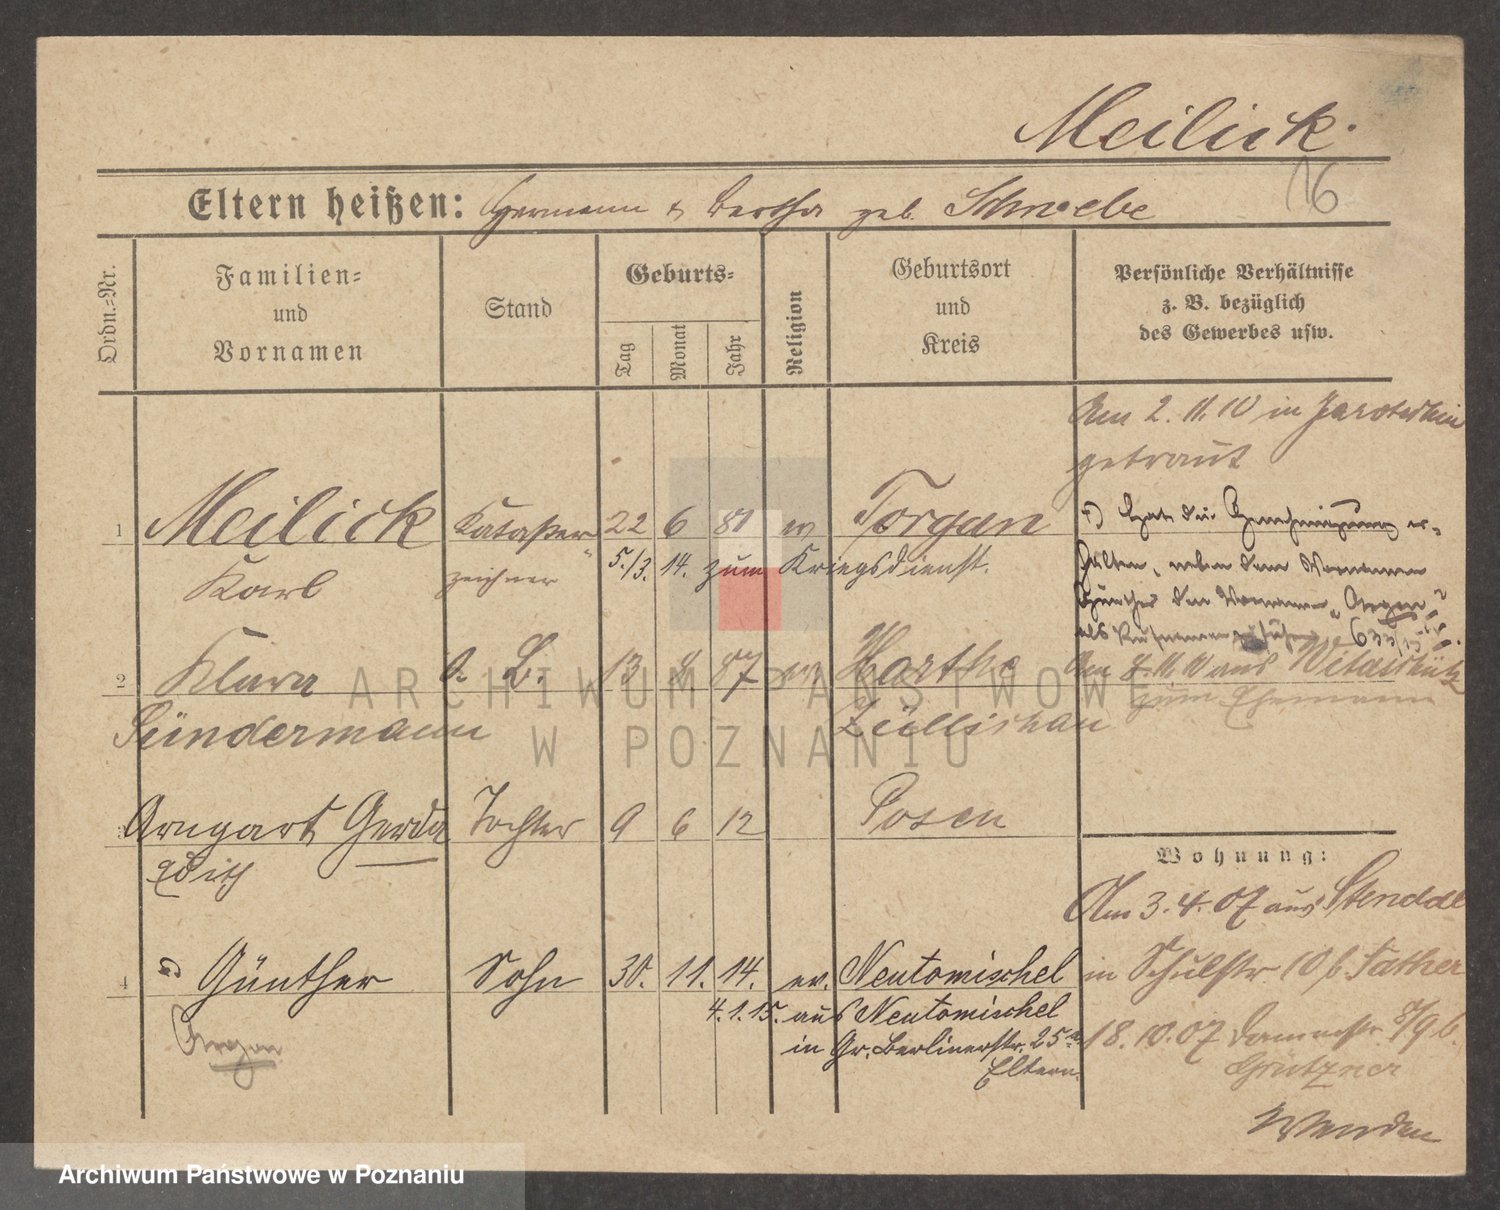 Meilick.
16
Eltern heißen: Hermann & Bertha geb. Schwebe
Ordn.-Nr.
Familien-
und
Vornamen
Stand
Geburts-
Tag
Monat
Jahr
Religion
Geburtsort
und
Kreis
Persönliche Verhältnisse
z. B. bezüglich
des Gewerbes usw.
Am 2. 11. 10 in Jarotschin
getraut
1 Meilick Kataster 22 6 81 ev Torgau
Karl zeichner 5./3. 14. zum Kriegsdienst.
Hat die Genehmigung er-
halten, neben dem Vornamen
Günther den Vornamen "Argon"
als Rufnamen zu führen
2 Klara o. B. 13 8. 87 ev
Sündermann Züllichau
Am 4. 11. 10 aus Witaschütz
zum Ehemann
3 Arngart Gerda Tochter 9 6 12 Posen
Edith
Wohnung:
Am 3. 4. 07 aus Stendal
4 Günther Sohn 30. 11. 14. ev. Neutomischel
in Schulstr. 10 b. Father
Argon
4. 1. 15. aus Neutomischel
in Gr. Berlinerstr. 25a
Eltern.
18. 10. 07 Dammstr. 8/9 b.
Grützner
Wenden
ARCHIWUM PAŃSTWOWE
W POZNANIU
Archiwum Państwowe w Poznaniu